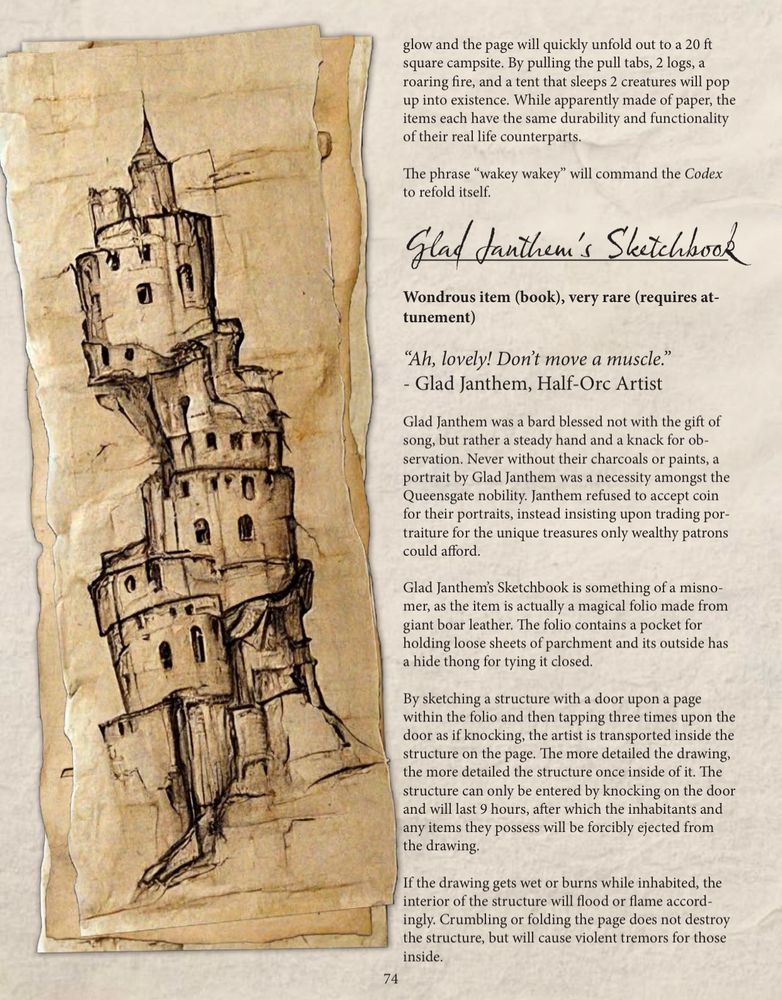 glow and the page will quickly unfold out to a 20 ft
square campsite. By pulling the pull tabs, 2 logs, a
roaring fire, and a tent that sleeps 2 creatures will pop
up into existence. While apparently made of paper, the
items each have the same durability and functionality
of their real life counterparts.
The phrase “wakey wakey” will command the Codex
to refold itself.
Glad Janthem's Sketchbook
Wondrous item (book), very rare (requires at-
tunement)
“Ah, lovely! Don’t move a muscle.”
- Glad Janthem, Half-Orc Artist
Glad Janthem was a bard blessed not with the gift of
song, but rather a steady hand and a knack for ob-
servation. Never without their charcoals or paints, a
portrait by Glad Janthem was a necessity amongst the
Queensgate nobility. Janthem refused to accept coin
for their portraits, instead insisting upon trading por-
traiture for the unique treasures only wealthy patrons
could afford.
Glad Janthem’s Sketchbook is something of a misno-
mer, as the item is actually a magical folio made from
giant boar leather. The folio contains a pocket for
holding loose sheets of parchment and its outside has
a hide thong for tying it closed.
By sketching a structure with a door upon a page
within the folio and then tapping three times upon the
door as if knocking, the artist is transported inside the
structure on the page. The more detailed the drawing,
the more detailed the structure once inside of it. The
structure can only be entered by knocking on the door
and will last 9 hours, after which the inhabitants and
any items they possess will be forcibly ejected from
the drawing.
If the drawing gets wet or burns while inhabited, the
interior of the structure will flood or flame accord-
ingly. Crumbling or folding the page does not destroy
the structure, but will cause violent tremors for those
inside.
74